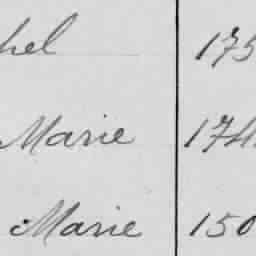 hel 175
Marie 174
Marie 150